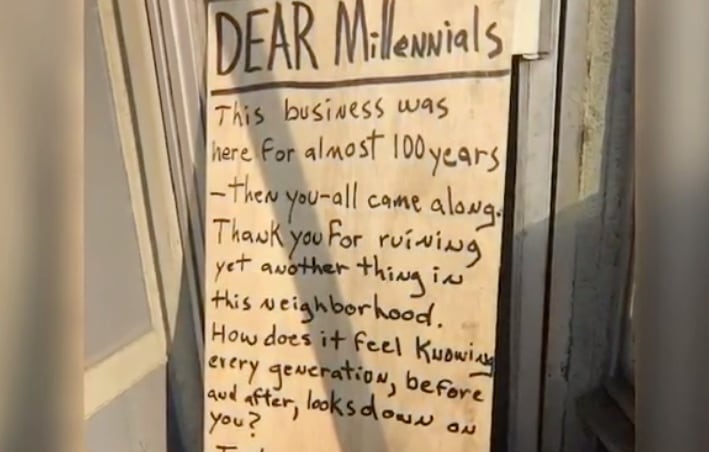 DEAR Millennials
This business was
here for almost 100 years
- then you-all came along.
Thank you for ruining
yet another thing in
this neighborhood.
How does it feel Knowing
every generation, before
and after, looks down on
you?